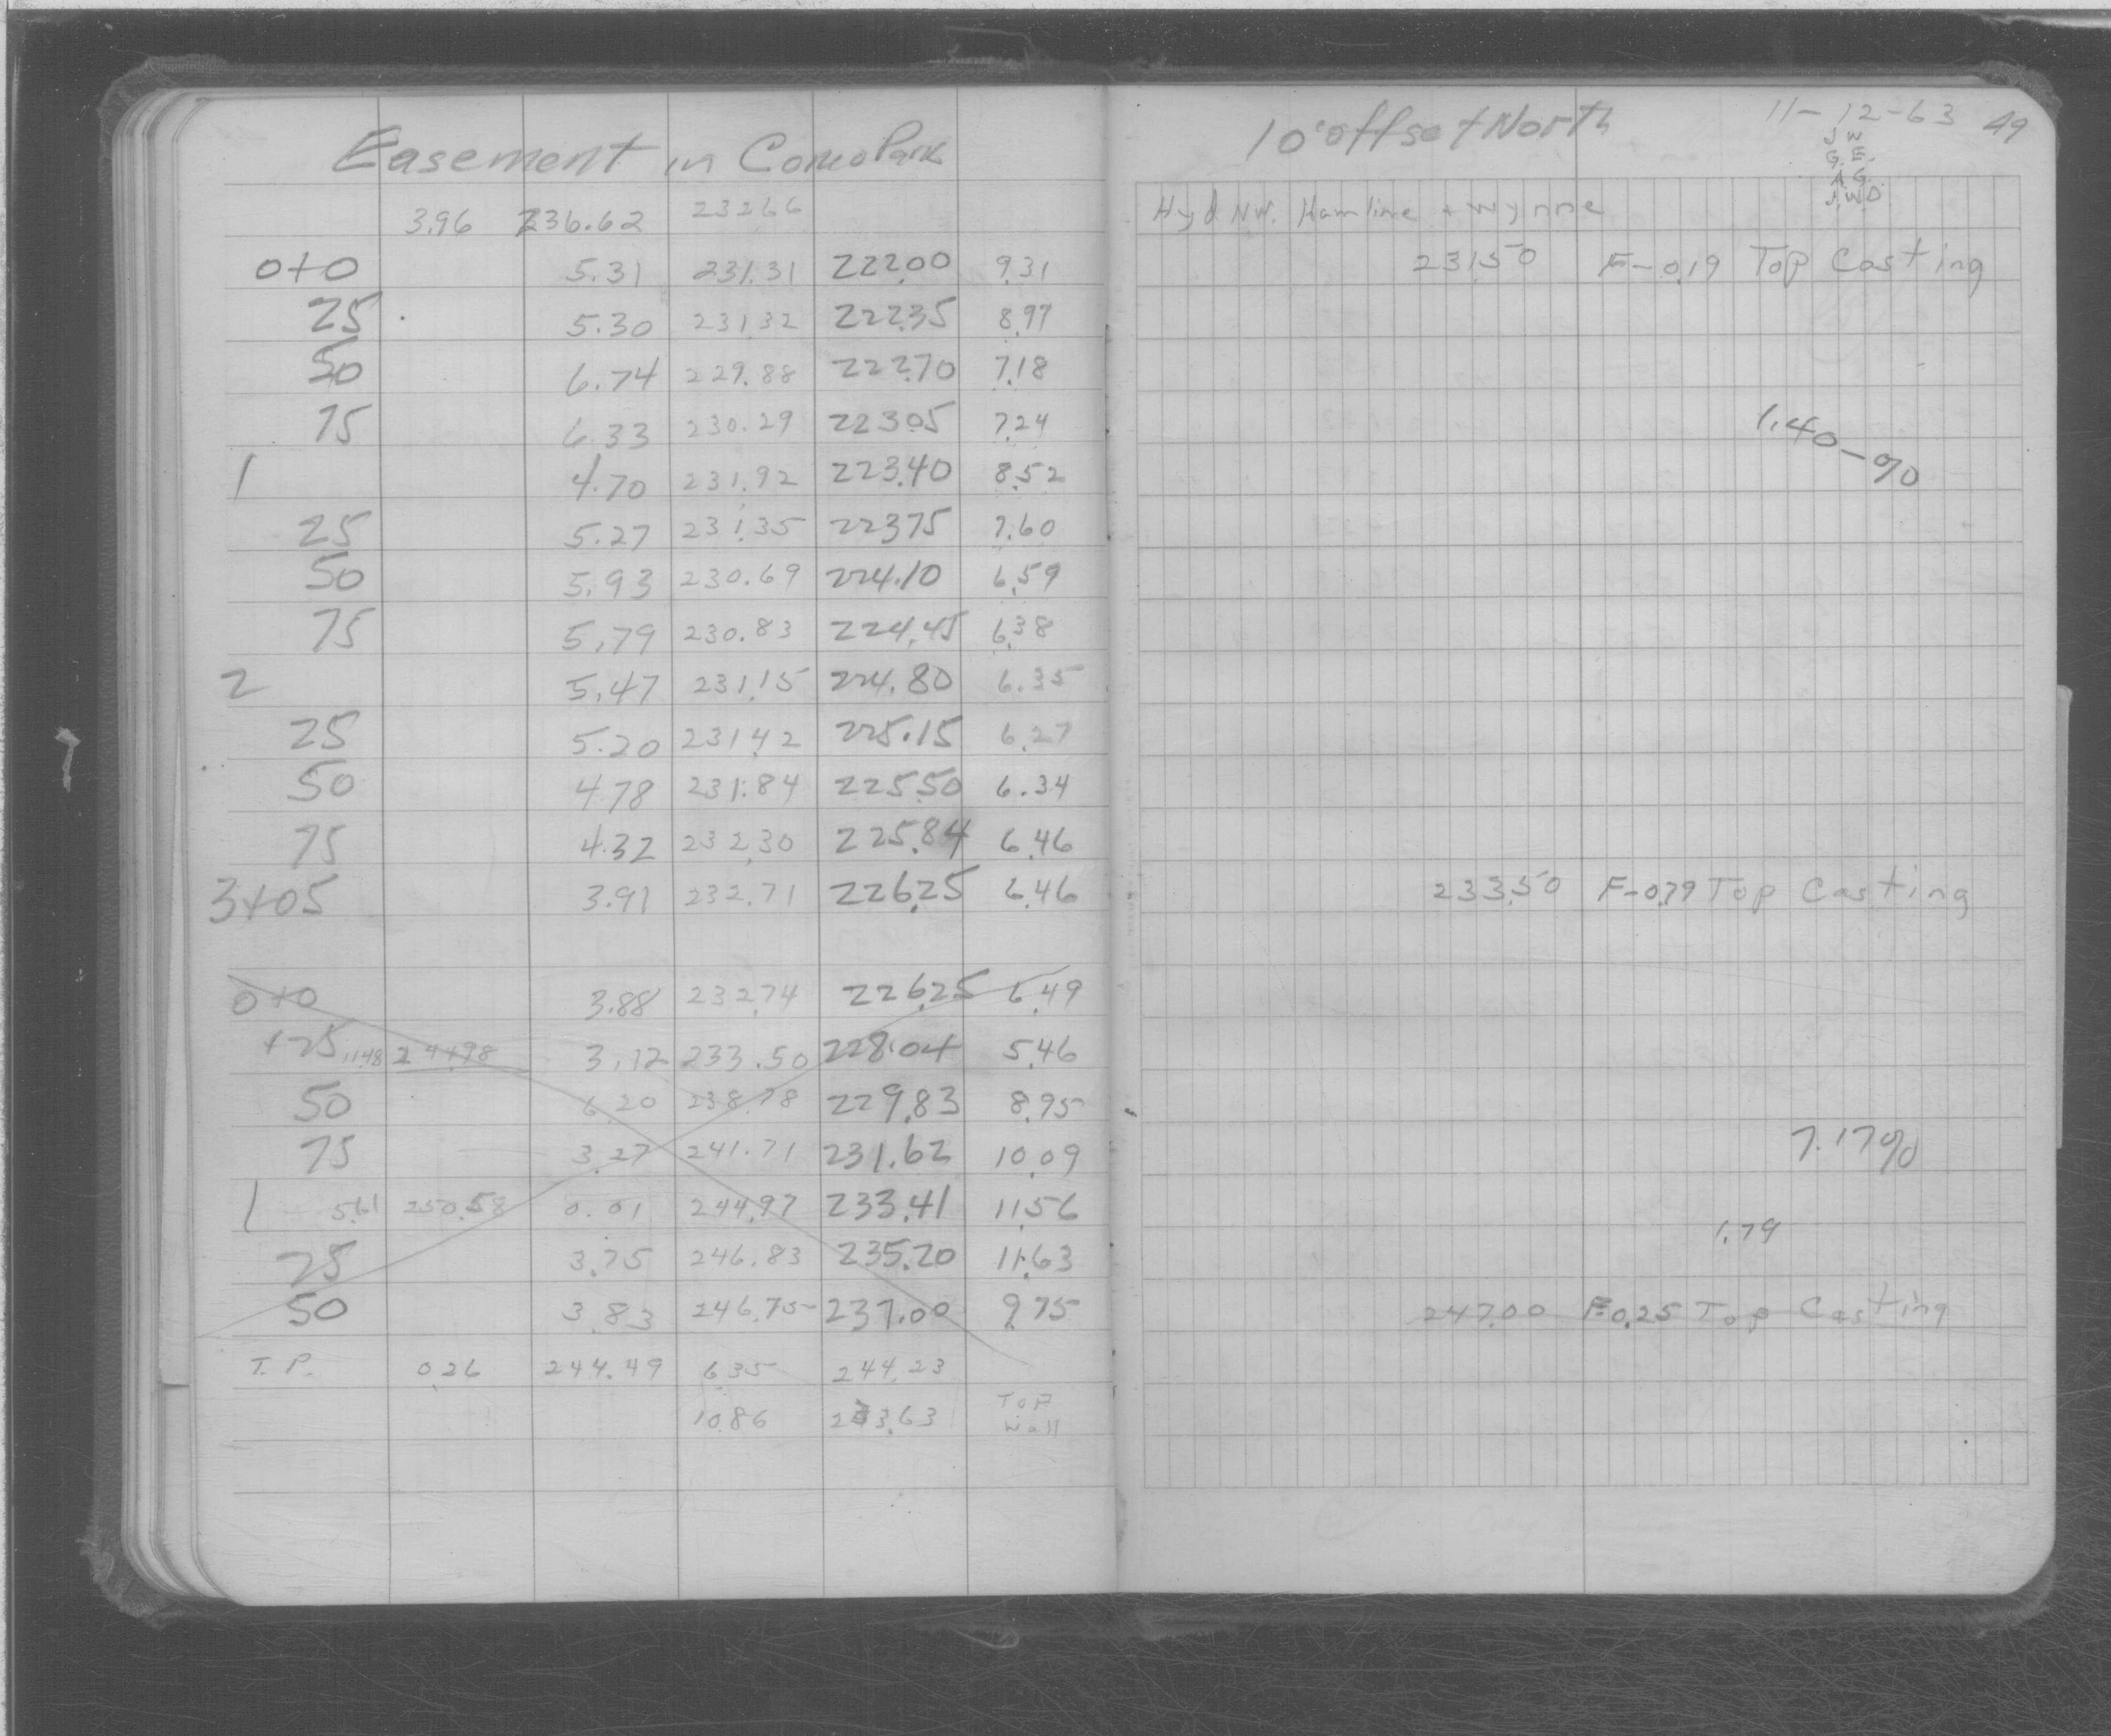 Easement in Como Park
3.96 236.62 232.66
0+0 5.31 231.31 222.00 9.31
25 5.30 231.32 222.35 8.97
50 6.74 229.88 222.70 7.18
75 6.33 230.29 223.05 7.24
1 4.70 231.92 223.40 8.52
25 5.27 231.35 22375 7.60
50 5.93 230.69 224.10 6.59
75 5.79 230.83 224.45 6.38
2 5.47 231.15 224.80 6.35
25 5.20 231.42 225.15 6.27
50 4.78 231.84 225.50 6.34
75 4.32 232.30 225.84 6.46
3+05 3.91 232.71 226.25 6.46
0+0 3.88 232.74 226.25 6.49
+25 11.48 244.98 3.12 233.50 228.04 5.46
50 6.20 238.78 229.83 8.95
75 3.27 241.71 231.62 10.09
1 5.61 250.58 0.01 244.97 233.41 11.56
25 3.75 246.83 235.20 11.63
50 3.83 246.75 237.00 9.75
T.P. 0.26 244.49 6.35 244.23
10.86 233.63 Top
Wall
10' offset North 11-12-63 49
J W
G. E.
A. G.
J.W.D
Hyd NW. Hamline + Wynne
231.50 F-0.19 Top Casting
1.40-%
233.50 F-0.79 Top Casting
7.17%
1.79
247.00 F-0.25 Top Casting